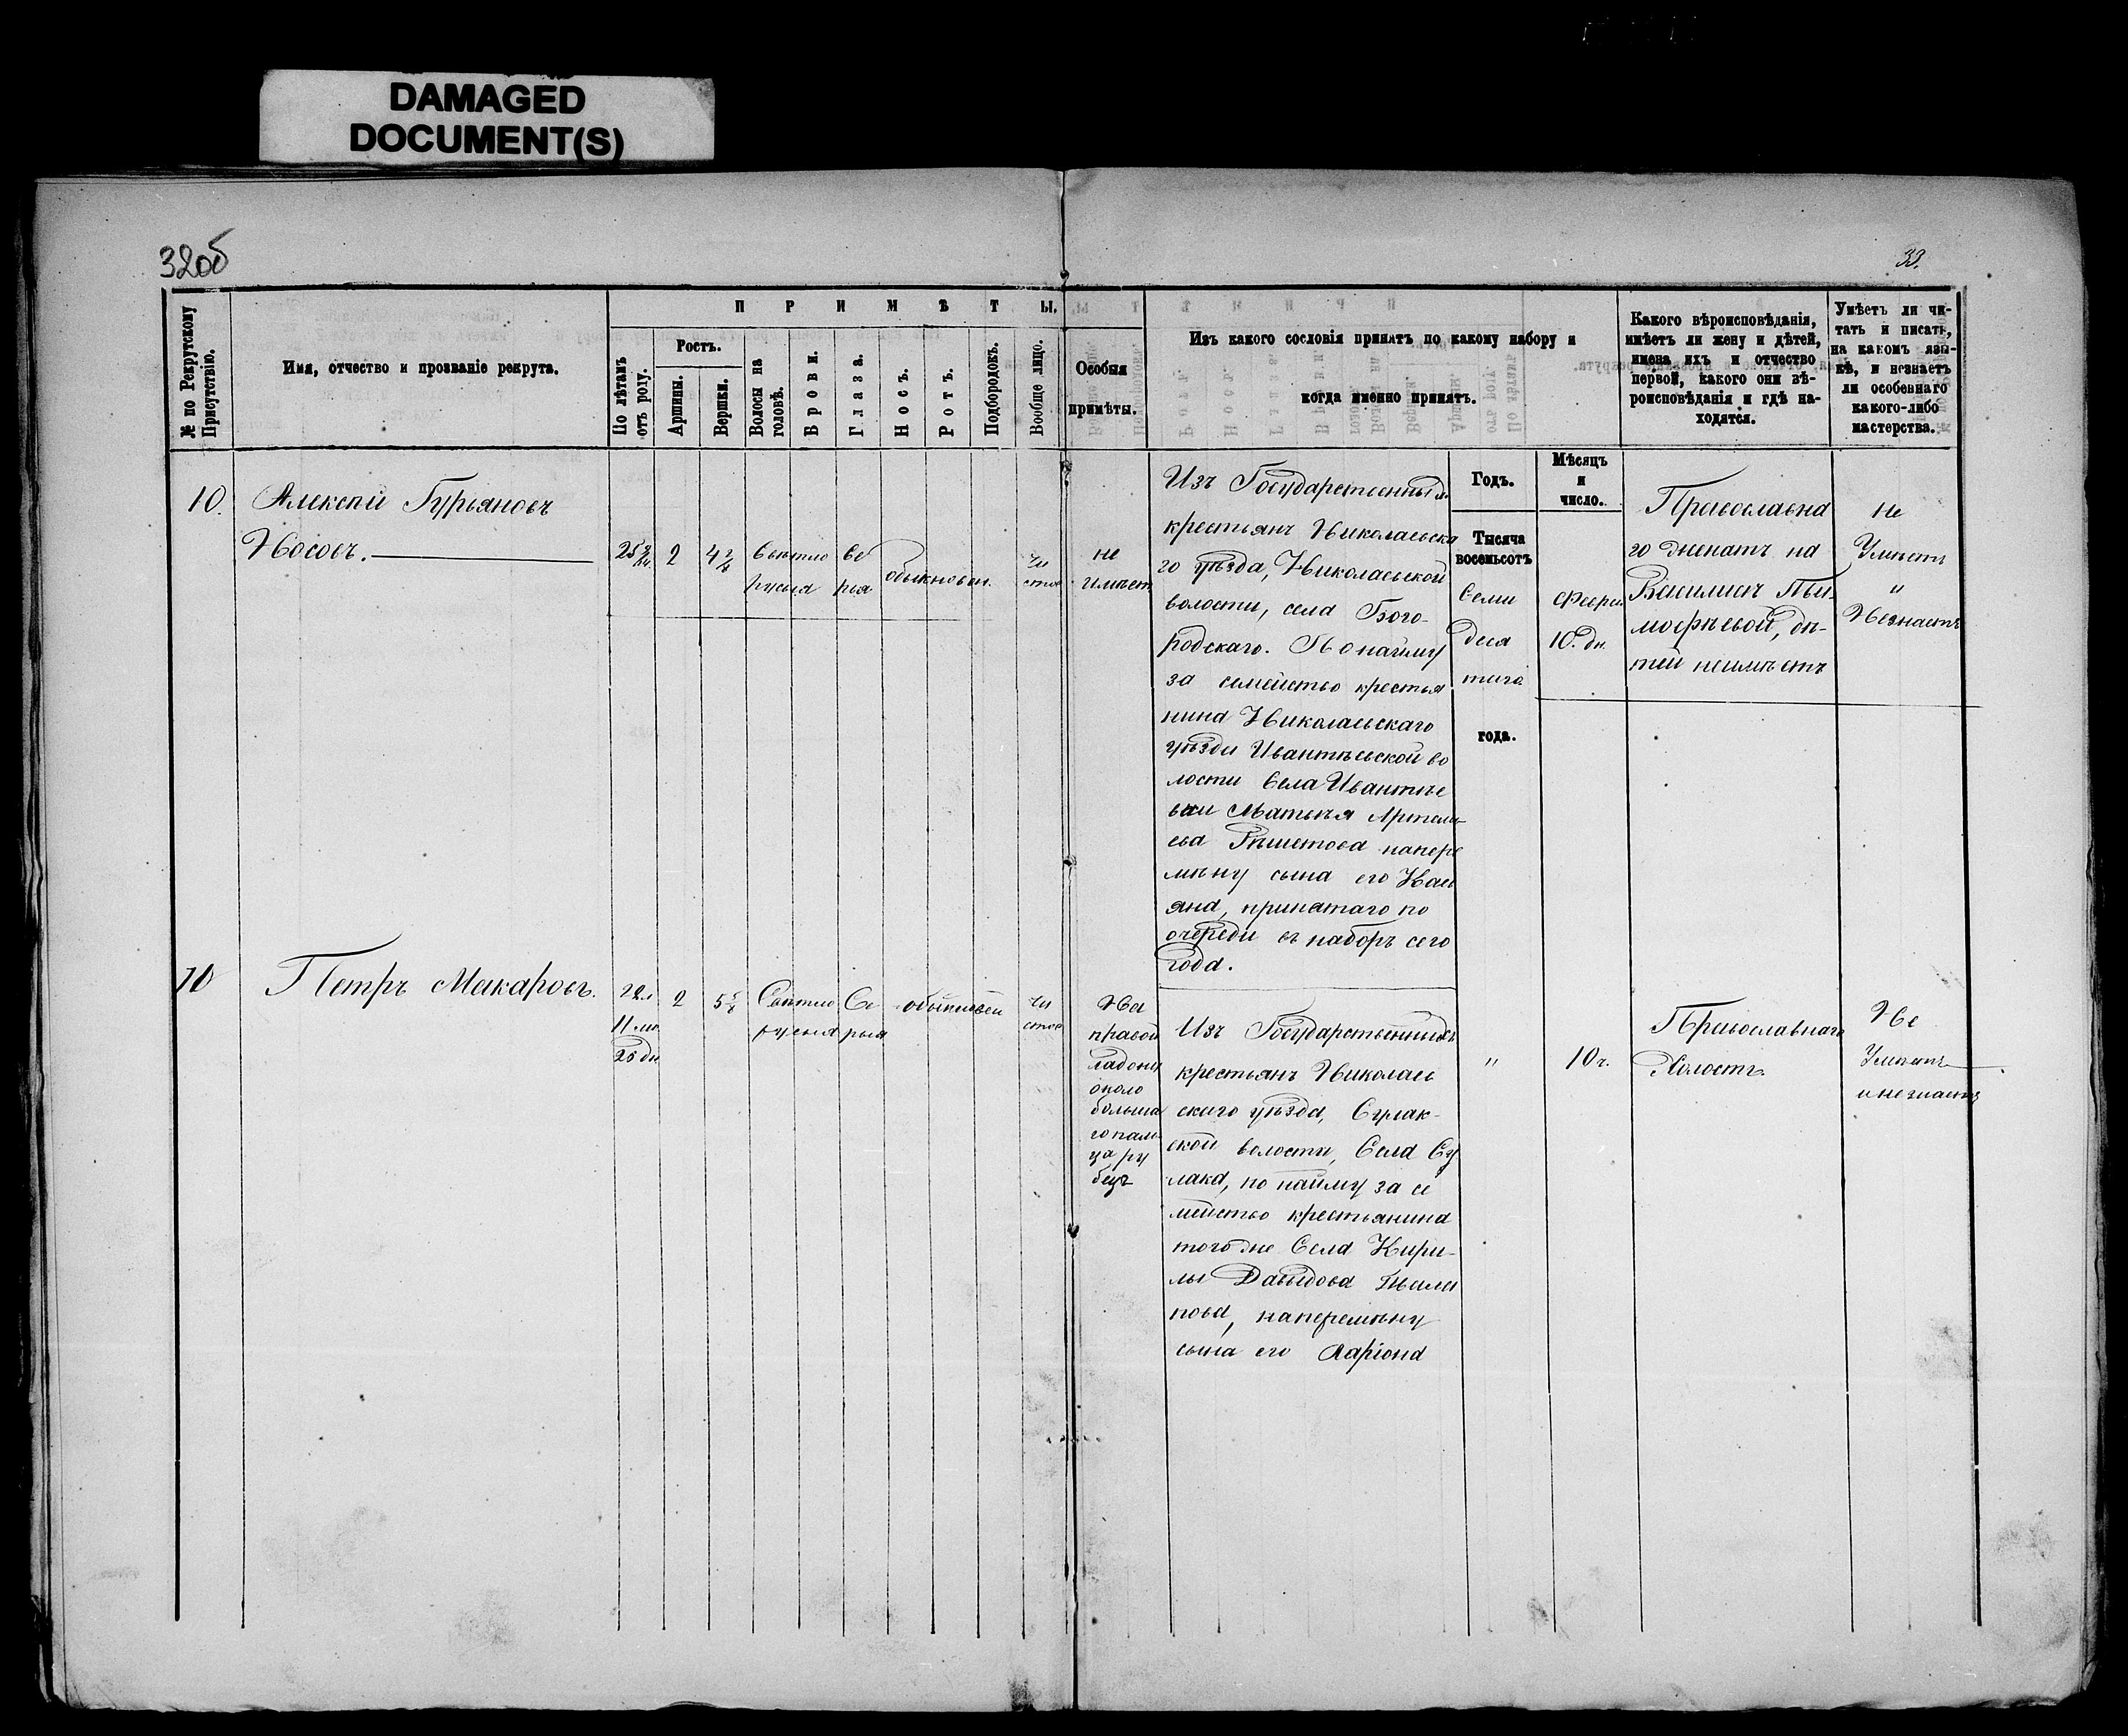 DAMAGED
DOCUMENT(S)
32об
33.
№ по Рекрутскому
Присутствію.
Имя, отчество и прозваніе рекрута.
ПРИМѢТЫ.
По лѣтамъ
отъ роду.
Ростъ.
Аршины.
Вершки.
Волосы на
головѣ.
Брови.
Глаза.
Носъ.
Ротъ.
Подбородокъ.
Вообще лицо.
Особыя
примѣты.
Изъ какого сословія принятъ по какому набору и
когда именно принятъ.
Какого вѣроисповѣданія,
имѣетъ ли жену и дѣтей,
имена ихъ и отчество
первой, какого они вѣ-
роисповѣданія и гдѣ на-
ходятся.
Умѣетъ ли чи-
тать и писать,
на какомъ язы-
кѣ, и незнаетъ
ли особеннаго
какого-либо
мастерства.
Годъ.
Мѣсяцъ
и
число.
10.
Алексѣй Гурьяновъ
Носовъ.
25
2
4
Свѣтло
русыя
Се
рыя
обыкновен.
чи
стое
не
имѣет
Изъ Государственных
крестьянъ Николаевска
го уѣзда, Николаевской
волости, села Бого-
родскаго. По найму
за семейство крестья
нина Николаевскаго
уѣзда Ивантѣевской во
лости Села Ивантѣе
вки Матвѣя
Рѣшетова напере
мѣну сына его Касъ
яна, принятаго по
очереди въ наборъ сего
года.
Тысяча
восемьсотъ
Семи
деся
таго
года.
Февра.
10. дн.
Православна
го женатъ на
Василисѣ Ти-
мофѣевой, дѣ-
тей неимѣетъ
не
Умѣетъ
и
Незнаетъ
10
Петръ Макаровъ.
22л
11 мѣ
25 дн
2
5
Свѣтло
русыя
Се
рыя
обыкновен
чи
стое
На
правой
ладони
около
больша
го паль
ца ру
бецъ
Изъ Государственныхъ
крестьянъ Николаев
скаго уѣзда, Сулак-
ской волости, Села Су
лака, по найму за се
мейство крестьянина
того же Села Кири-
лы Давыдова
пова, наперемѣну
сына его Ларіона
"
10 ч.
Православнаго
Холостъ
Не
Умѣетъ
и незнаетъ